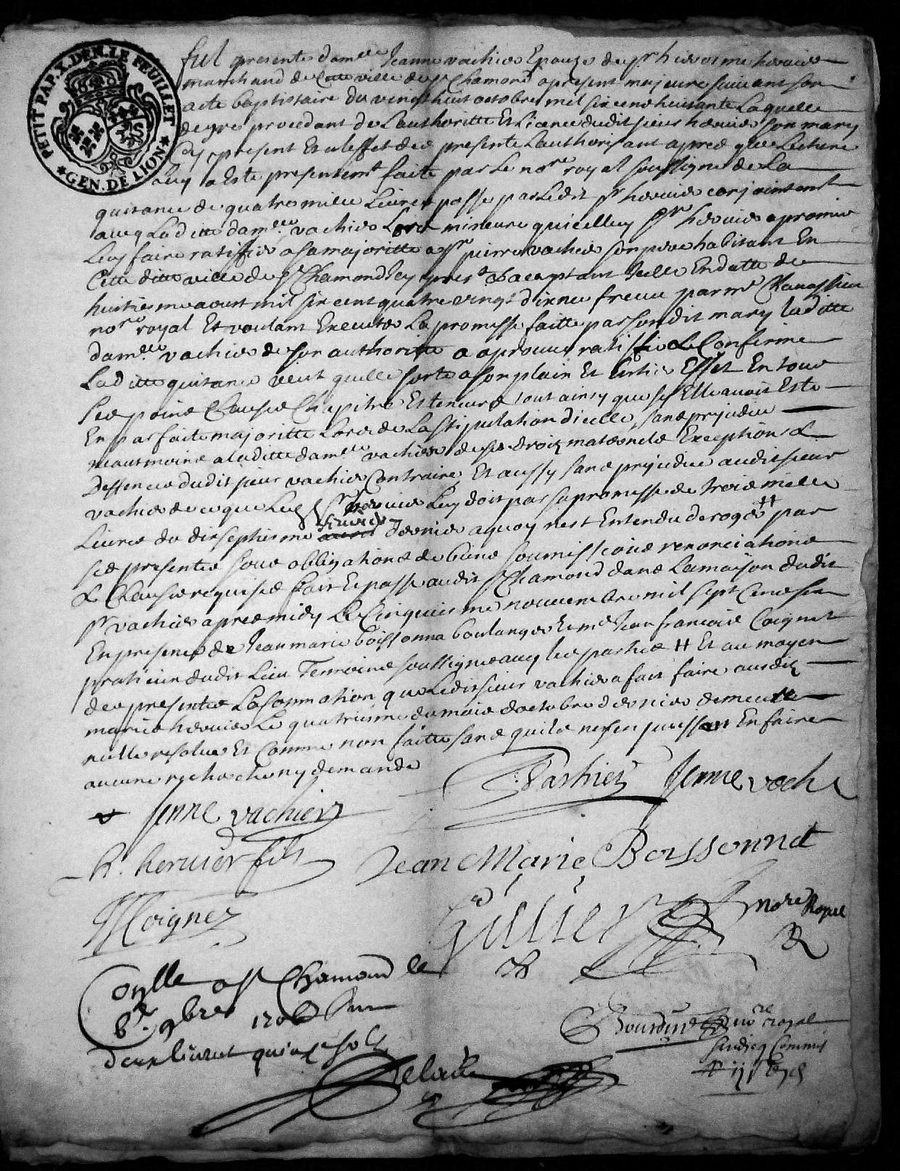 PETIT PAP. X. DEN. LE FEUILLET
GEN. DE LION
fut presente dam.lle Jeanne vachier Epouze de s.r hierosme hervier
marchand de Cette ville de S.t Chamond apresent majeure suivant son
acte baptistaire du vingt huit octobre mil six cens huitante Laquelle
de gre procedant de Lauthoritte Et Licance dudit sieur hervier son mary
Icy present Et a leffet des presentes Lauthorisant apres que Lecture
a luy a Este presentem.t faite par Le no.re royal soussigne de La
quitance de quatre mille Livres passe par Ledit s.r hervier conjointem.t
avecq Laditte dam.lle vachier Lors mineure quicelluy s.r hervier a promis
luy faire ratiffier a sa majoritte a s.r pierre vachier son pere habitant En
Cette ditte ville de S.t Chamond Icy pres.t Et aceptant Icelle En datte du
huitiesme aoust mil six cent quatre vingt dixneuf receu par m.e Chavassieu
no.re royal Et voulant Executer La promesse faitte par son dit mary laditte
dam.lle vachier de son authoritte a aprouve ratiffie Et Confirme
Laditte quitance veut quelle sorte a son plain Et Entier Effet En tous
ses points Clauses Chapitre Et teneur tout ainsy que sy Elle avoit Este
En parfaite majoritte Lors de La stipulation dicelle, sans prejudice
neautmoins a laditte dam.lle vachier de ses droitz maternels Exceptions &
Deffences dudit sieur vachier Contraire, Et aussy sans prejudice audit sieur
vachier de ce que Led. s.r hervier Luy doit par sa promesse de trois mille
Livres du dixseptiesme dernier a quoy nest Entendu deroger # par
ces presentes sous obligations de biens soumissions renonciations
& Clauses requises fait Et passe audit S.t Chamond dans La maison dudit
s.r vachier apres midy Le Cinquiesme novembre mil sept Cens six
En presence de Jean marie boissonna boulanger Et m.e Jean francois Coignet
praticien dudit Lieu Tesmoins soussignes avecq les parties # Et au moyen
des presentes La sommation que Ledit sieur vachier a fait faire audit
mariés hervier Le quatriesme du mois doctobre dernier demeure
nulle resolue Et comme non faitte sans quils nefen puissent En faire
aucune recherche ny demande
+ Jenne vachier
P. Vachier Jenne vache
h. hervier fils
Jean Marie Boissonnat
JF Coignet
Grivier no.re Royal
R
Conlle a St Chamond le
8.e 9bre 1706
deux livres quinze sols
Delac
Bourdin no.re royal
sindicq Commis